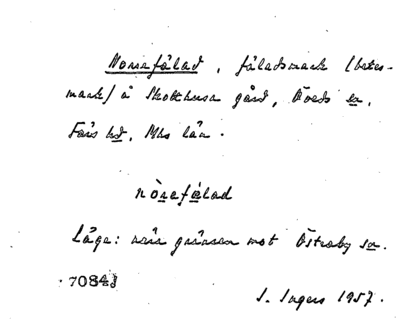 Norrefälad, fäladsmark (betes-
mark) å Skotthusa gård, Öveds sn,
Färs hd, Mhs län.
nòrefälad
Läge: nära gränsen mot Östraby sn.
70843
I. Ingers 1957.